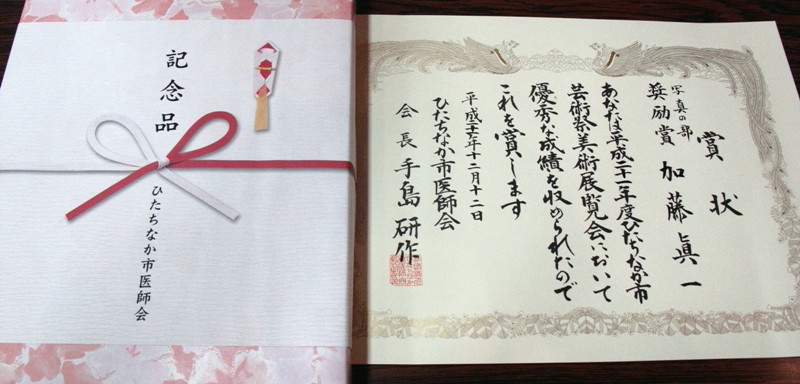 記念品
ひたちなか市医師会
賞状
写真の部
奨励賞 加藤眞一
あなたは平成二十一年度ひたちなか市
芸術祭美術展覧会において
優秀な成績を収められたので
これを賞します
平成二十一年十二月十二日
ひたちなか市医師会
会長 手島研作